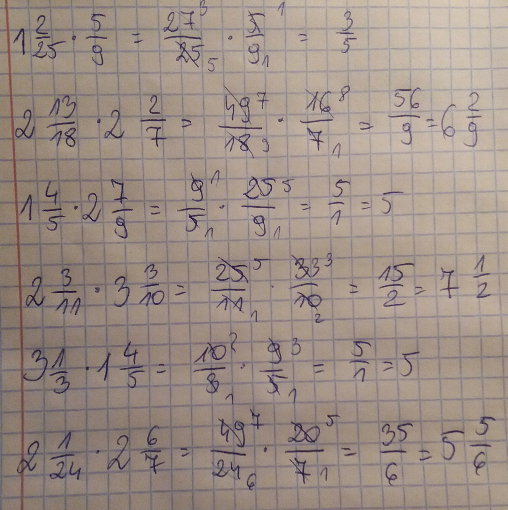 1 2/25 · 5/9 = 27³/25₅ · 5¹/9₁ = 3/5
2 13/18 · 2 2/7 = 49⁷/18₉ · 16⁸/7₁ = 56/9 = 6 2/9
1 4/5 · 2 7/9 = 9¹/5₁ · 25⁵/9₁ = 5/1 = 5
2 3/11 · 3 3/10 = 25⁵/11₁ · 33³/10₂ = 15/2 = 7 1/2
3 1/3 · 1 4/5 = 10²/3₁ · 9³/5₁ = 5/1 = 5
2 1/24 · 2 6/7 = 49⁷/24₆ · 20⁵/7₁ = 35/6 = 5 5/6